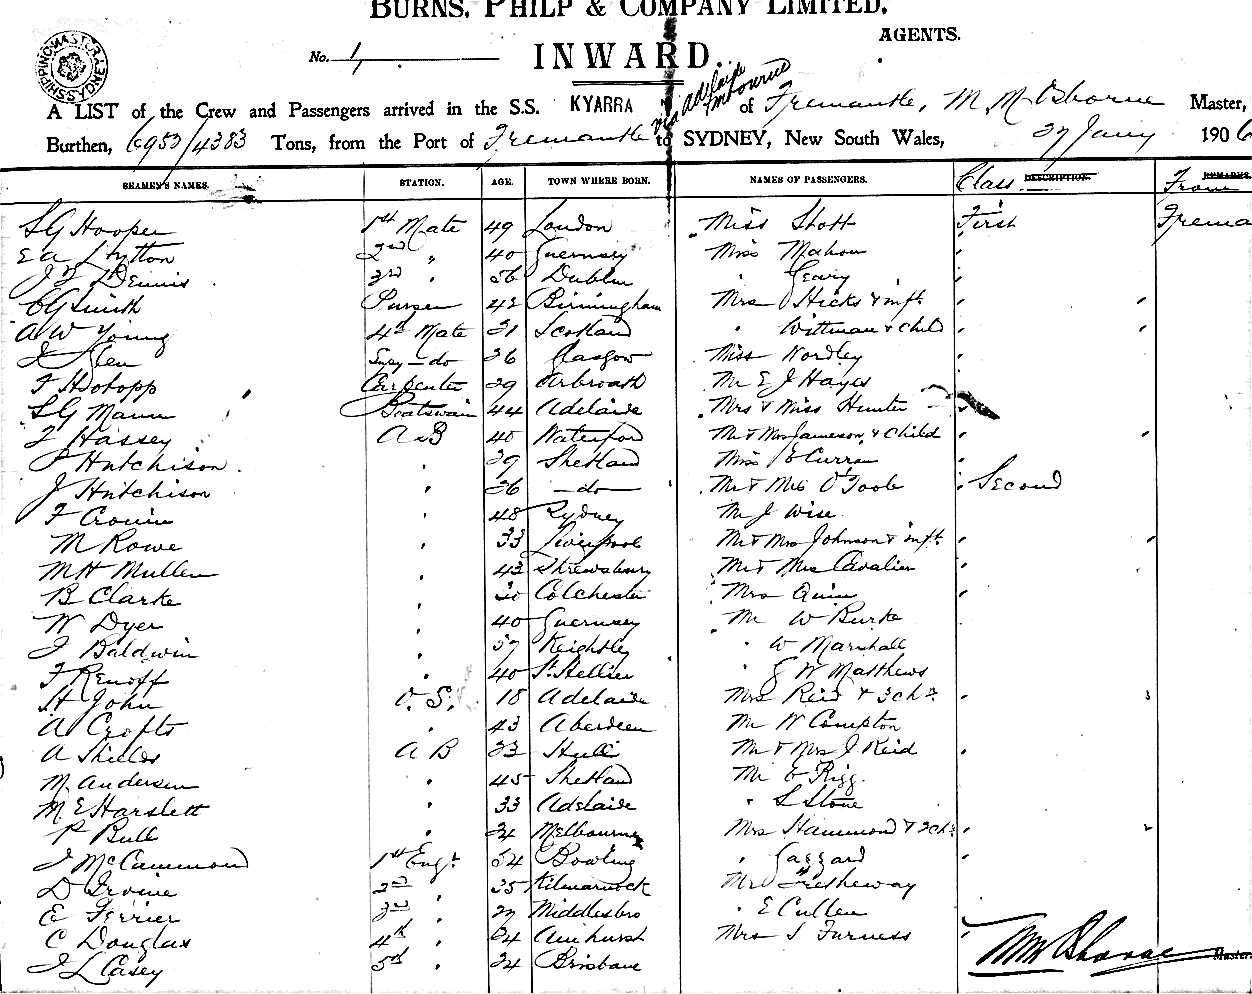 BURNS, PHILP & COMPANY LIMITED,
AGENTS.
SHIPPING MASTER SYDNEY
No. 1, INWARD.
via Adelaide Melbourne
A LIST of the Crew and Passengers arrived in the S.S. KYARRA of Fremantle, M. M. Osborne Master,
Burthen, 6953/4383 Tons, from the Port of Fremantle to SYDNEY, New South Wales, 27 Jany 1906
SEAMEN'S NAMES. STATION. AGE. TOWN WHERE BORN. NAMES OF PASSENGERS. Class DESCRIPTION. From REMARKS.
S G Hooper 1st Mate 49 London Miss Stott First Frema
E A Hytton 2nd " 40 Guernsey Miss Mahon "
Dennis 3rd " 36 Dublin " Geary "
C G Smith Purser 42 Birmingham Mrs Hicks & inft " "
A W Young 4th Mate 31 Scotland " Wittman & Child "
Glen do 26 Glasgow Miss Wordley "
F Hotopp Carpenter 29 Arbroath Mr E J Hayes "
S G Mann Boatswain 44 Adelaide Mrs & Miss Hunter "
Hassey A B 40 Waterford Mr & Mrs Jameson & Child " "
Hutchison " 29 Shetland Miss E Curran "
J Hutchison " 36 do Mr & Mrs O'Toole " Second
F Cronin " 48 Sydney Mr J Wise
M Rowe " 33 Liverpool Mr & Mrs Johnson & inft " "
M H Mullen " 43 Shrewsbury Mr & Mrs Cavalier "
B Clarke " Colchester Mrs Quin "
W Dyer " 40 Guernsey Mr W Burke
J Baldwin " 37 Keighley " W Marshall
F Renoff " 40 St Hellier " G W Matthews
H John O. S. 18 Adelaide Mrs Reid & 3 chn " "
A Crofts " 43 Aberdeen Mr W Compton
A Shields A B 33 Hull Mr & Mrs J Reid "
M Andersen " 45 Shetland Mr E Rigg
M E Harslett " 33 Adelaide " S Stone
P Bull " 24 Melbourne Mrs Hammond & 3 chn "
J McCammond 1st Engr. 34 Bowling " Gaggard "
D Irvine 2nd " 35 Kilmarnock Mr Tresheway
E Ferrier 3rd " 27 Middlesbro " E Cullen
C Douglas 4th " 24 Amhurst Mrs S Furness "
J L Casey 5th " 24 Brisbane
M M Osborne Master.